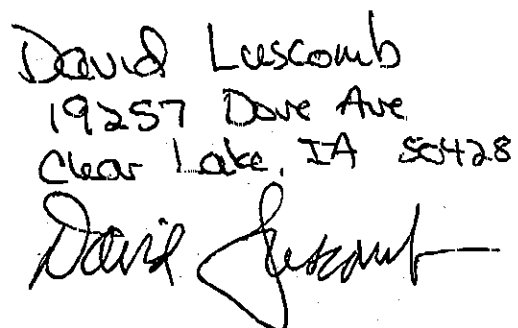 David Luscomb
19257 Dove Ave
Clear Lake, IA 50428
David Luscomb